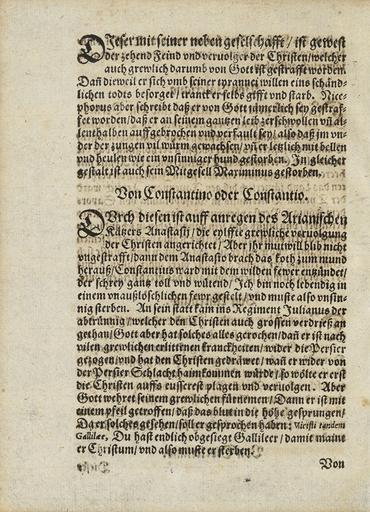 DIeser mit seiner neben gesellschafft / ist gewest
der zehend Feind vnd veruolger der Christen / welcher
auch grewlich darumb von Gott ist gestraffet worden.
Dañ dieweil er sich vmb seiner tyranney willen eins schänd-
lichen todts besorget / tranck er selbs gifft vnd starb. Nice-
phorus aber schreibt daß er von Gott jnnerlich sey gestraf-
fet worden / daß er an seinem gantzen leib zerschwollen vñ al-
lenthalben auffgebrochen vnd verfault sey / also daß jm vn-
der der zungen vil würm gewachsen / vñ er letzlich mit bellen
vnd heulen wie ein vnsinniger hund gestorben. In gleicher
gestalt ist auch sein Mitgesell Maximinus gestorben.
Von Constantino oder Constantio.
DVrch diesen ist auff anregen des Arianischen
Käysers Anastasij / die eylffte grewliche veruolgung
der Christen angerichtet / Aber jhr mutwill blib nicht
vngestrafft / dann dem Anastasio brach das koth zum mund
herauß / Constantius ward mit dem wilden fewer entzündet /
der schrey gantz toll vnd wütend / Ich bin noch lebendig in
einem vnaußlöschlichen fewr gestelt / vnd muste also vnsin-
nig sterben. An sein statt kam ins Regiment Julianus der
abtrünnig / welcher den Christen auch grossen verdrieß an
gethan / Gott aber hat solches alles gerochen / dañ er ist nach
vilen grewlichen erlittenen kranckheiten / wider die Persier
gezogen / vnd hat den Christen gedräwet / wañ er wider von
der Persier Schlacht haimkommen würde / so wölte er erst
die Christen auffs eusserest plagen vnd veruolgen. Aber
Gott wehret seinem grewlichen fürnemen / Dann er ist mit
einem pfeil getroffen / daß das blut in die höhe gesprungen /
Da er solches gesehen / soll er gesprochen haben: Vicisti tandem
Gallilæe, Du hast endlich obgesiegt Gallileer / damit maint
er Christum / vnd also muste er sterben.
Von